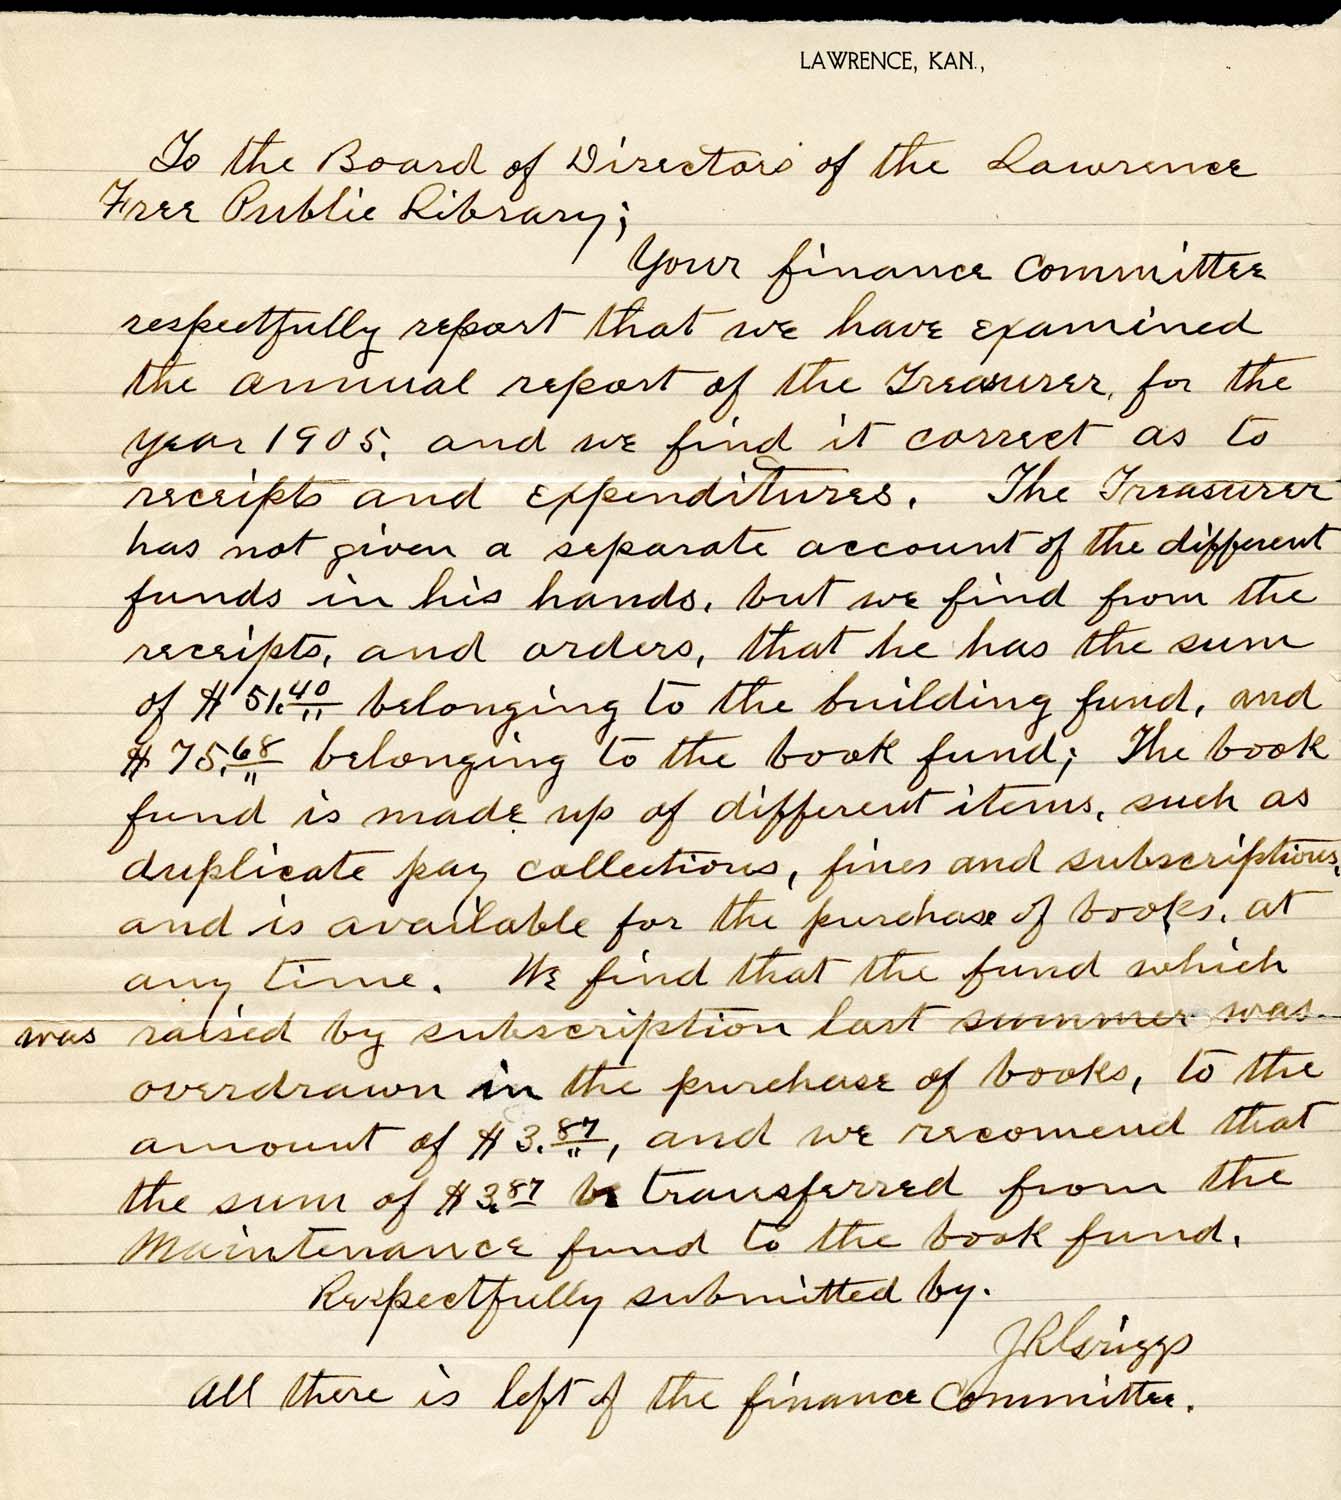 LAWRENCE, KAN.,
To the Board of Directors of the Lawrence
Free Public Library;
Your finance committee
respectfully report that we have examined
the annual report of the Treasurer, for the
year 1905, and we find it correct as to
receipts and expenditures. The Treasurer
has not given a separate account of the different
funds in his hands, but we find from the
receipts, and orders, that he has the sum
of $51.40 belonging to the building fund, and
$75.68 belonging to the book fund; The book
fund is made up of different items, such as
duplicate pay collections, fines and subscriptions,
and is available for the purchase of books, at
any time. We find that the fund which
was raised by subscription last summer was
overdrawn in the purchase of books, to the
amount of $3.87, and we recomend that
the sum of $3.87 be transferred from the
Maintenance fund to the book fund.
Respectfully submitted by.
J R Griggs
All there is left of the finance Committee.